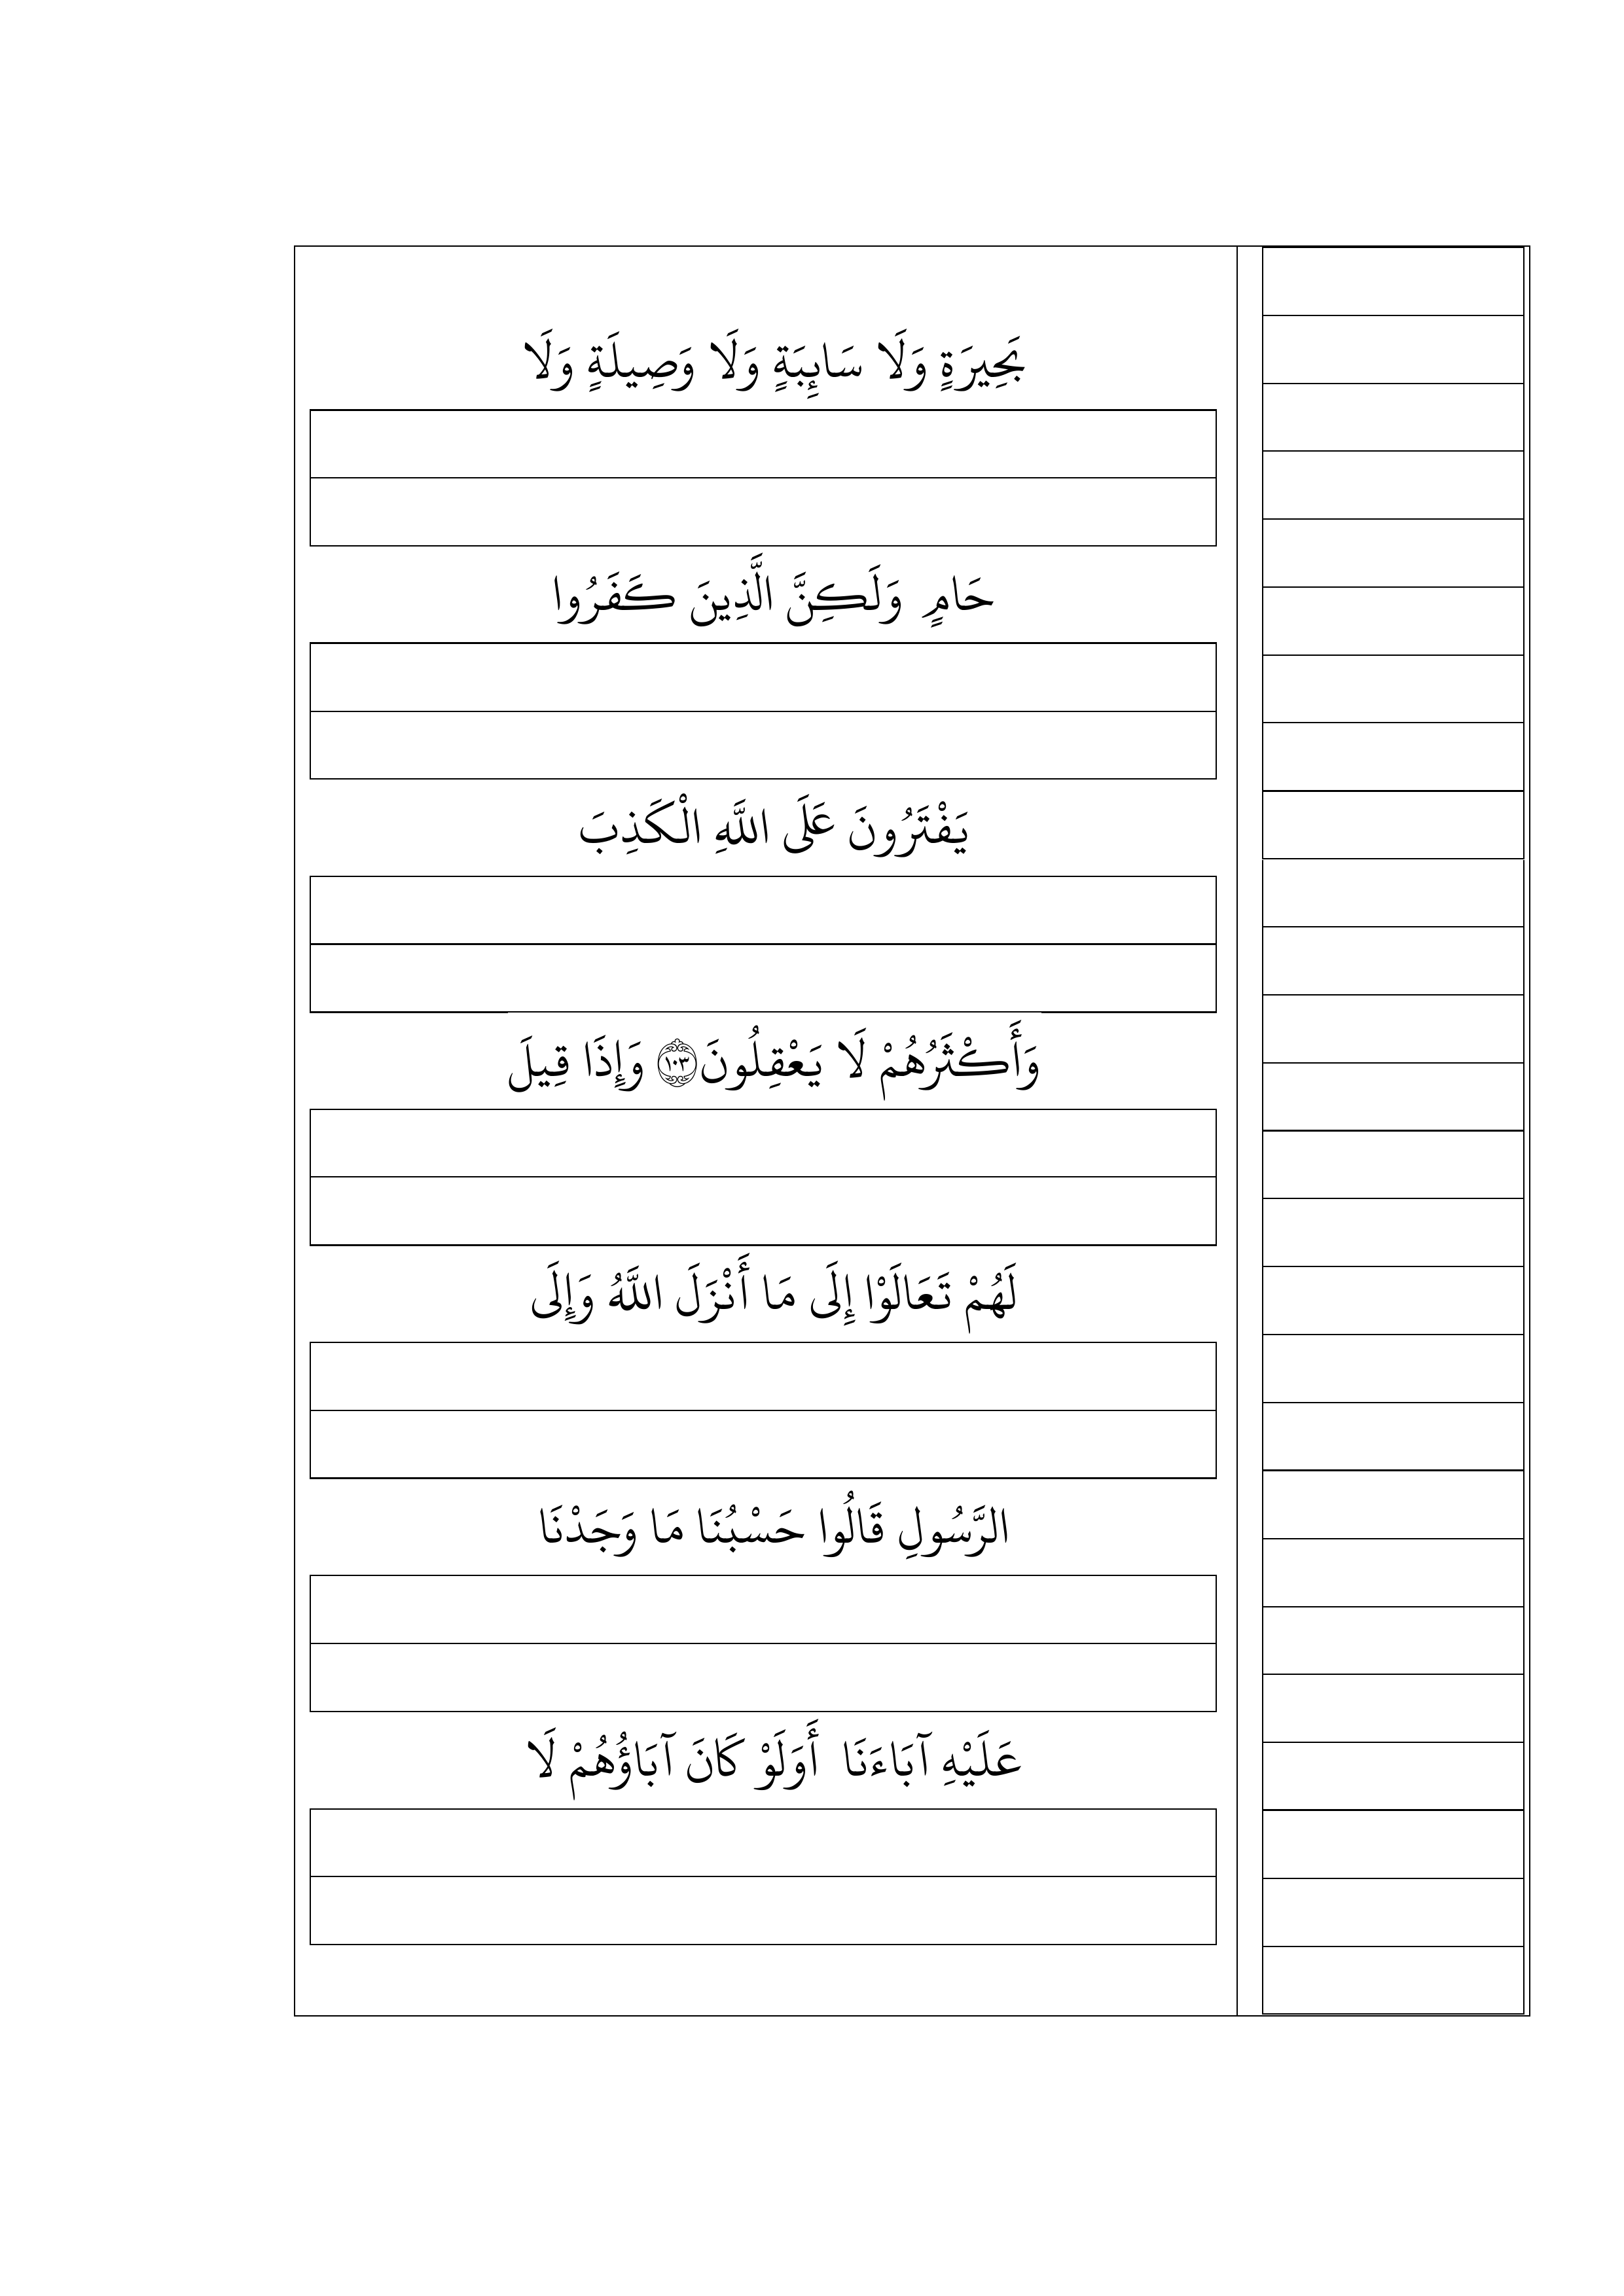 بَحِيرَةٍ وَلَا سَائِبَةٍ وَلَا وَصِيلَةٍ وَلَا
حَامٍ وَلَكِنَّ الَّذِينَ كَفَرُوا
يَفْتَرُونَ عَلَى اللَّهِ الْكَذِبَ
وَأَكْثَرُهُمْ لَا يَعْقِلُونَ ١٠٣ وَإِذَا قِيلَ
لَهُمْ تَعَالَوْا إِلَى مَا أَنْزَلَ اللَّهُ وَإِلَى
الرَّسُولِ قَالُوا حَسْبُنَا مَا وَجَدْنَا
عَلَيْهِ آبَاءَنَا أَوَلَوْ كَانَ آبَاؤُهُمْ لَا